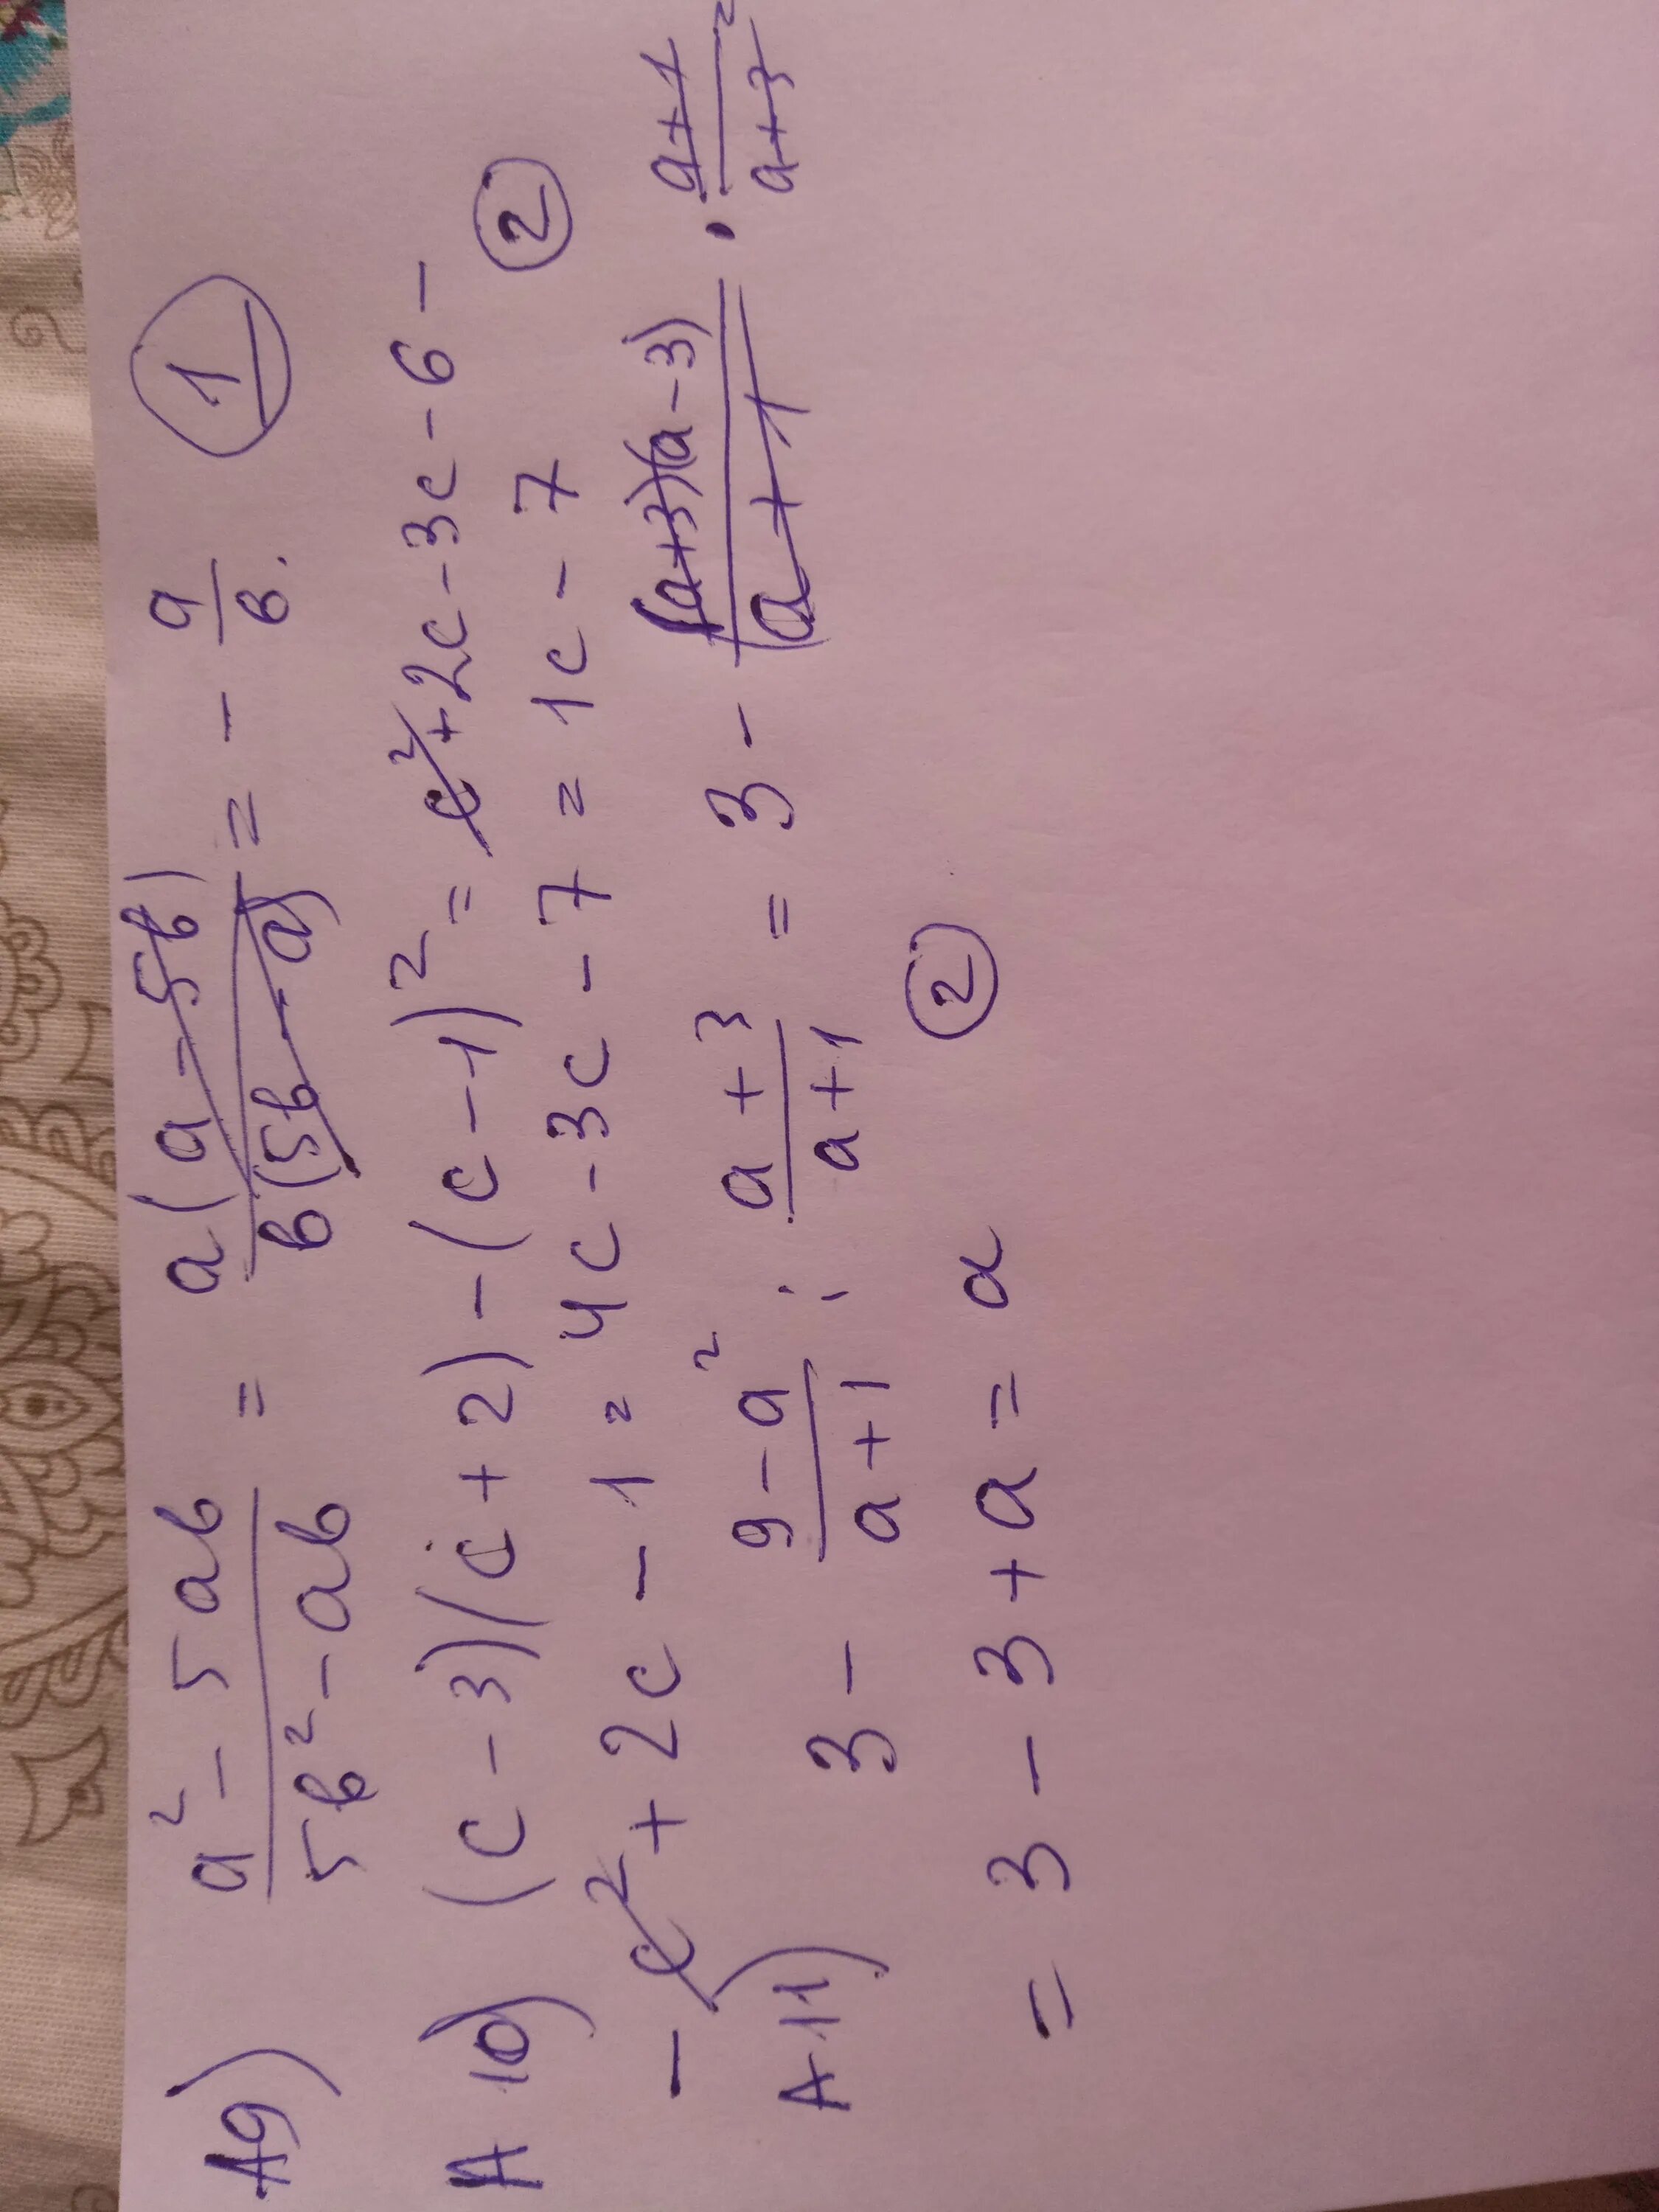 А9) (a² - 5ab)/(5b² - ab) = a(a - 5b)/b(5b - a) = - a/b. ①
А 10) (c - 3)(c + 2) - (c - 1)² = c² + 2c - 3c - 6 -
- c² + 2c - 1 = 4c - 3c - 7 = 1c - 7 ②
А 11) 3 - (9 - a²)/(a + 1) : (a + 3)/(a + 1) = 3 - (a+3)(a-3)/(a + 1) · (a+1)/(a+3) =
= 3 - 3 + a = a ②